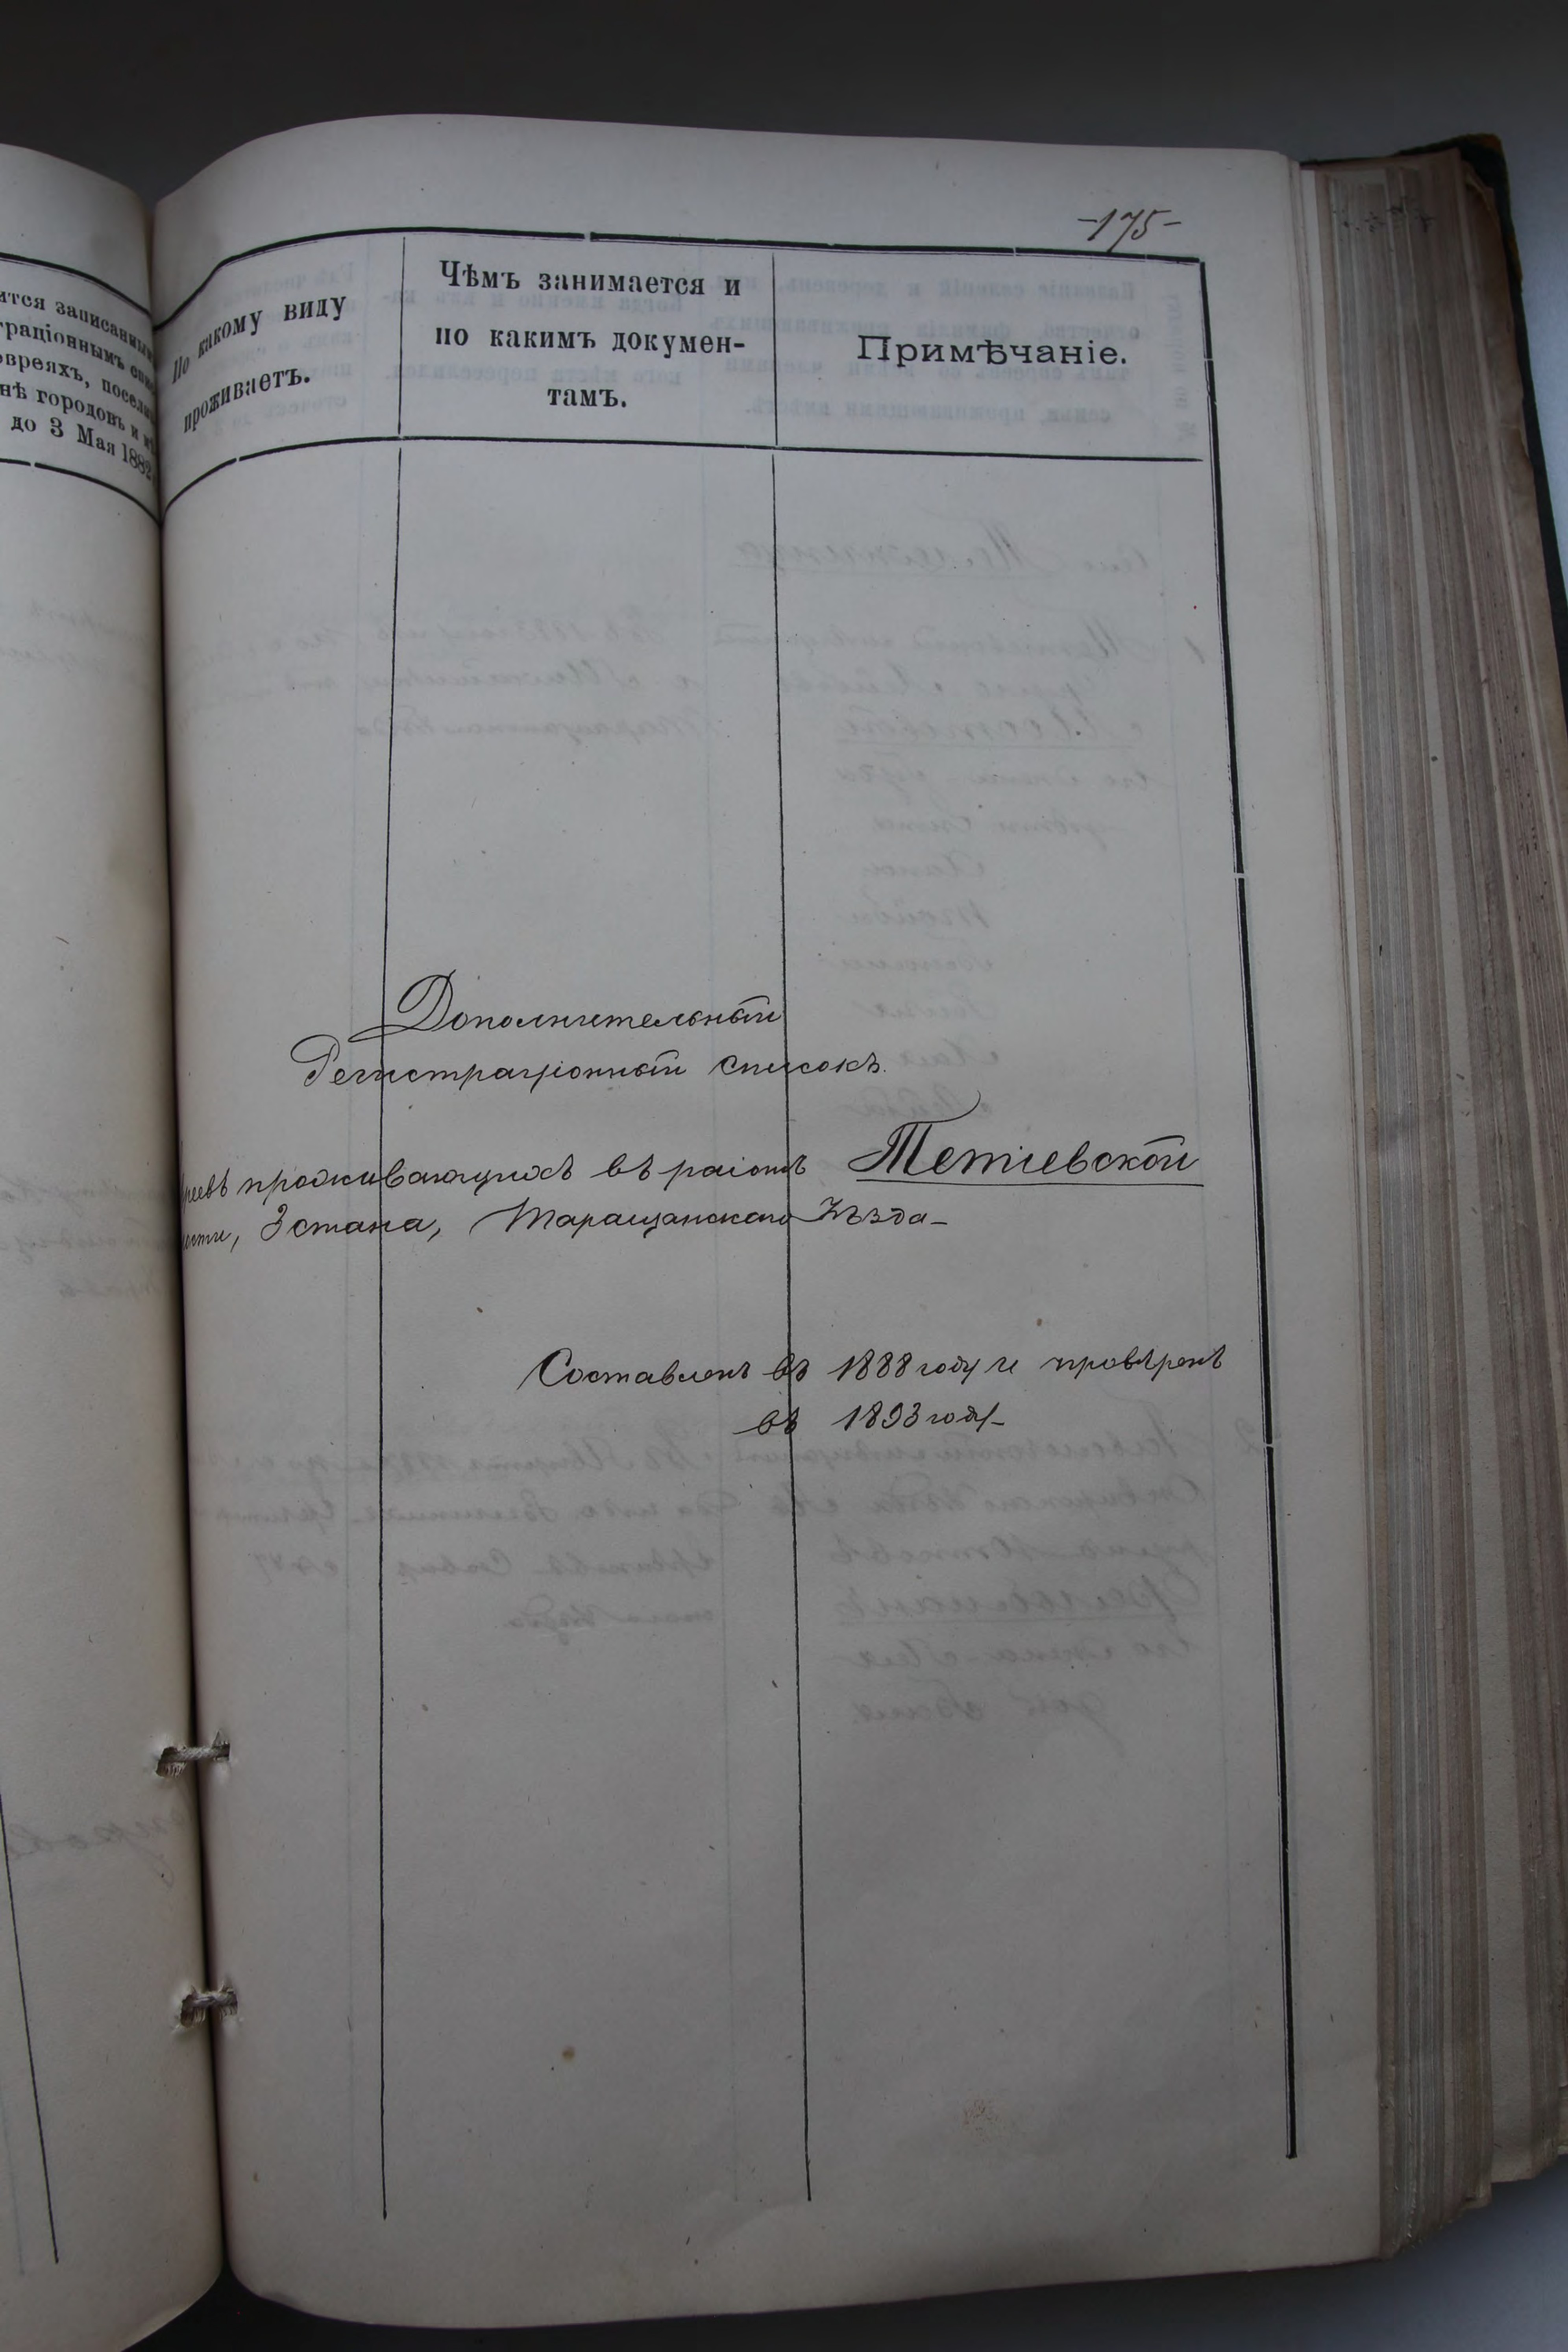 -175-
ится записаннымъ
граціоннымъ спис
евреяхъ, поселив
нѣ городовъ и м
до 3 Мая 1882
По какому виду
проживаетъ.
Чѣмъ занимается и
по какимъ докумен-
тамъ.
Примѣчаніе.
Дополнительный
Регистраціонный списокъ.
реевъ проживающихъ въ раіонѣ Тетіевской
ости, 3 стана, Таращанскаго Уѣзда-
Составленъ въ 1888 году и провѣренъ
въ 1893 году-